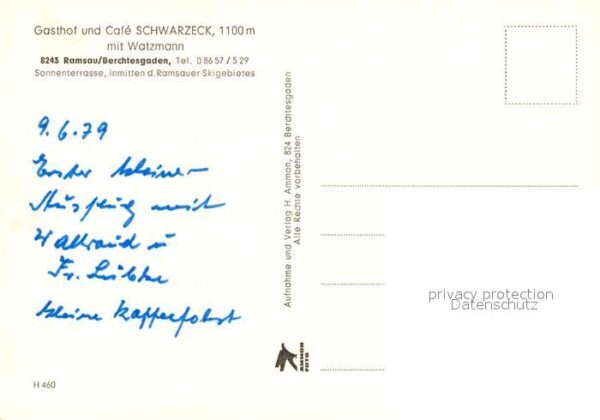 Gasthof und Café SCHWARZECK, 1100 m
mit Watzmann
8243 Ramsau/Berchtesgaden, Tel. 0 86 57 / 5 29
Sonnenterrasse, inmitten d. Ramsauer Skigebietes
9.6.79
Erster kleiner
Ausflug mit
Waltraud u
Fr. Lübke
kleine Kaffeefahrt
Aufnahme und Verlag H. Ammon, 824 Berchtesgaden
Alle Rechte vorbehalten
privacy protection
Datenschutz
AMMON
FOTO
H 460